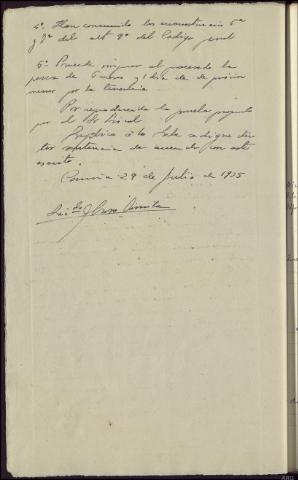 4ª Han concurrido las circunstancias 5ª
y 8ª del artº 9º del Codigo penal
5ª Procede imponer al procesado la
pena de 6 meses y 1 dia de prision
menor por la tenencia.
Por reproducida la prueba propuesta
por el Sr Fiscal
Suplico á la Sala se digne dic
tar sentencia de acuerdo con este
escrito.
29 de Julio de 1935